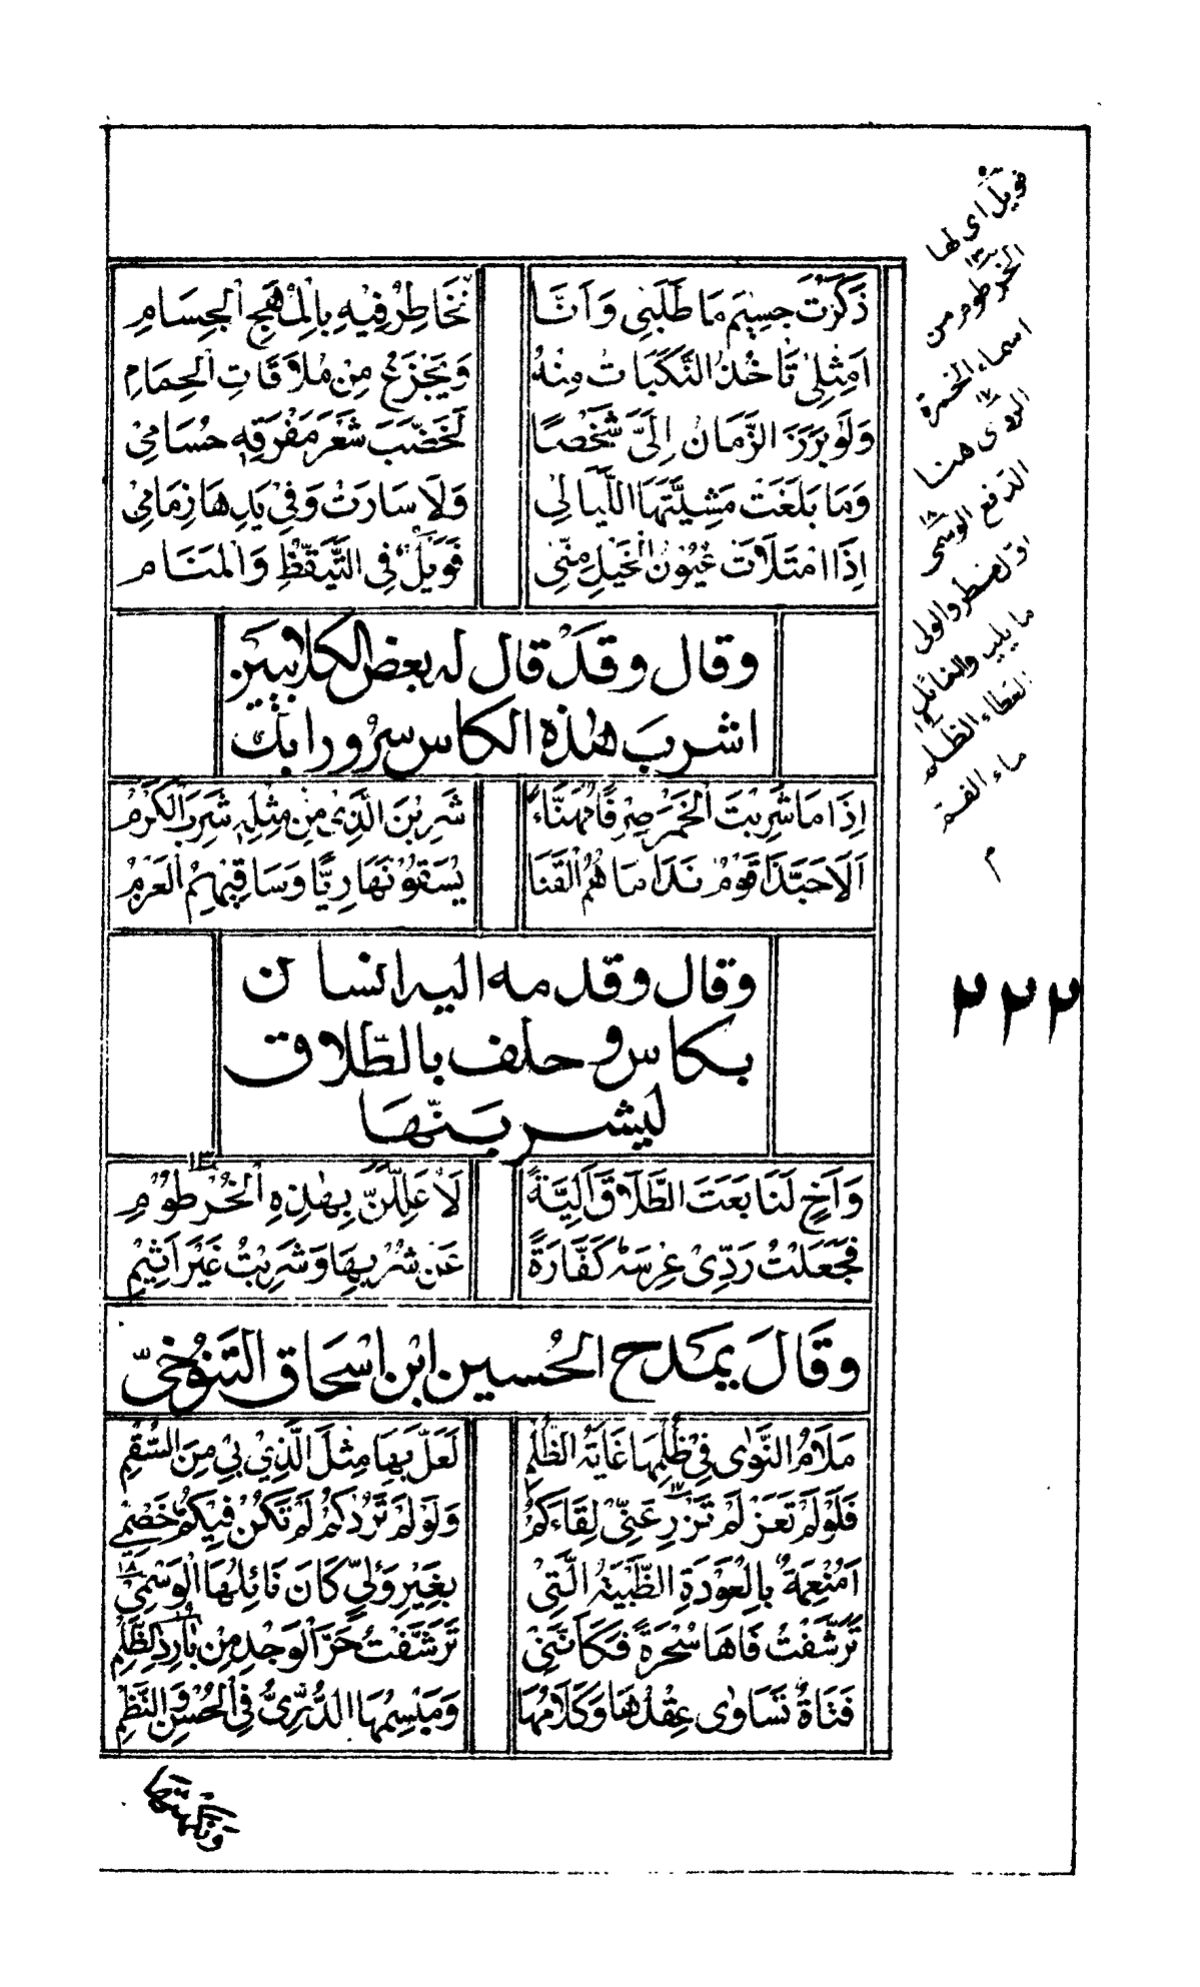 ذَكَرْتَ جَسِيْمَ مَا طَلَبِيْ وَاَنَّا نُخَاطِرُ فِيْهِ بِالْمُهَجِ الْجِسَامِ
اَمِثْلِيْ تَاْخُذُ النَّكَبَاتُ مِنْهُ وَيَجْزَعُ مِنْ مُلَاقَاتِ الْحِمَامِ
وَلَوْ بَرَزَ الزَّمَانُ اِلَيَّ شَخْصًا لَخَضَّبَ شَعْرَ مَفْرَقِهٖ حُسَامِيْ
وَمَا بَلَغَتْ مَشِيَّتَهَا اللَّيَالِيْ وَلَا سَارَتْ وَفِيْ يَدِهَا زِمَامِيْ
اِذَا امْتَلَاَتْ عُيُوْنُ الْخَيْلِ مِنِّيْ فَوَيْلٌ فِي التَّيَقُّظِ وَالْمَنَامِ
وقال وقد قال له بعض الكلابيين
اشرب هذه الكاس سرورا بك
اِذَا مَا شَرِبْتَ الْخَمْرَ صِرْفًا مُهَنَّاءً شَرِبْنَ الَّذِيْ مِنْ مِثْلِهٖ شَرِبَ الْكَرْمُ
اَلَا حَبَّذَا قَوْمٌ نَدَامَا هُمُ الْقَنَا يُسَقُّوْنَهَا رِيًّا وَسَاقِيْهِمُ الْعَزْمُ
وقال وقد مه اليه انسان
بكاس و حلف بالطّلاق
ليشربنّها
وَاَخٍ لَنَا بَعَثَ الطَّلَاقَ اَلِيَّةً لَاُعَلِّلَنَّ بِهٰذِهِ الْخُرْطُوْمِ ١٣
فَجَعَلْتُ رَدِّيْ عِرْسَهٗ كَفَّارَةً عَنْ شُرْبِهَا وَشَرِبْتُ غَيْرَ اَثِيْمِ
وقَالَ يمَدح الحُسين ابن اسْحَاق التَنوُخيّ
مَلَامُ النَّوٰى فِيْ ظُلْمِهَا غَايَةُ الظُّلْمِ لَعَلَّ بِهَا مِثْلَ الَّذِيْ بِيْ مِنَ السُّقْمِ
فَلَوْ لَمْ تَغَرْ لَمْ تَزْوِ عَنِّيْ لِقَاءَكُمْ وَلَوْ لَمْ تُرِدْكُمْ لَمْ تَكُنْ فِيْكُمُ خَصْمِيْ
اَمُنْعِمَةٌ بِالْعَوْدَةِ الظَّبْيَةُ الَّتِيْ بِغَيْرِ وَلِيٍّ كَانَ نَائِلُهَا الْوَسْمِيْ ١٨
تَرَشَّفْتُ فَاهَا سُحْرَةً فَكَاَنَّنِيْ تَرَشَّفْتُ حَرَّ الْوَجْدِ مِنْ بَارِدِ الظَّلْمِ
فَتَاةٌ تَسَاوٰى عِقْدُهَا وَكَلَامُهَا وَمَبْسِمُهَا الدُّرِّيُّ فِي الْحُسْنِ وَالنَّظْمِ
ونكهتها
فويل اى لها
١٣ الخرطوم من
اسماء الخمرة
الزى هنا
الدفع ١٨ الوسمى
اول المطر والولى
ما يليه والنائل
العطاء الظلم
ماء الفم
م
٢٢٢